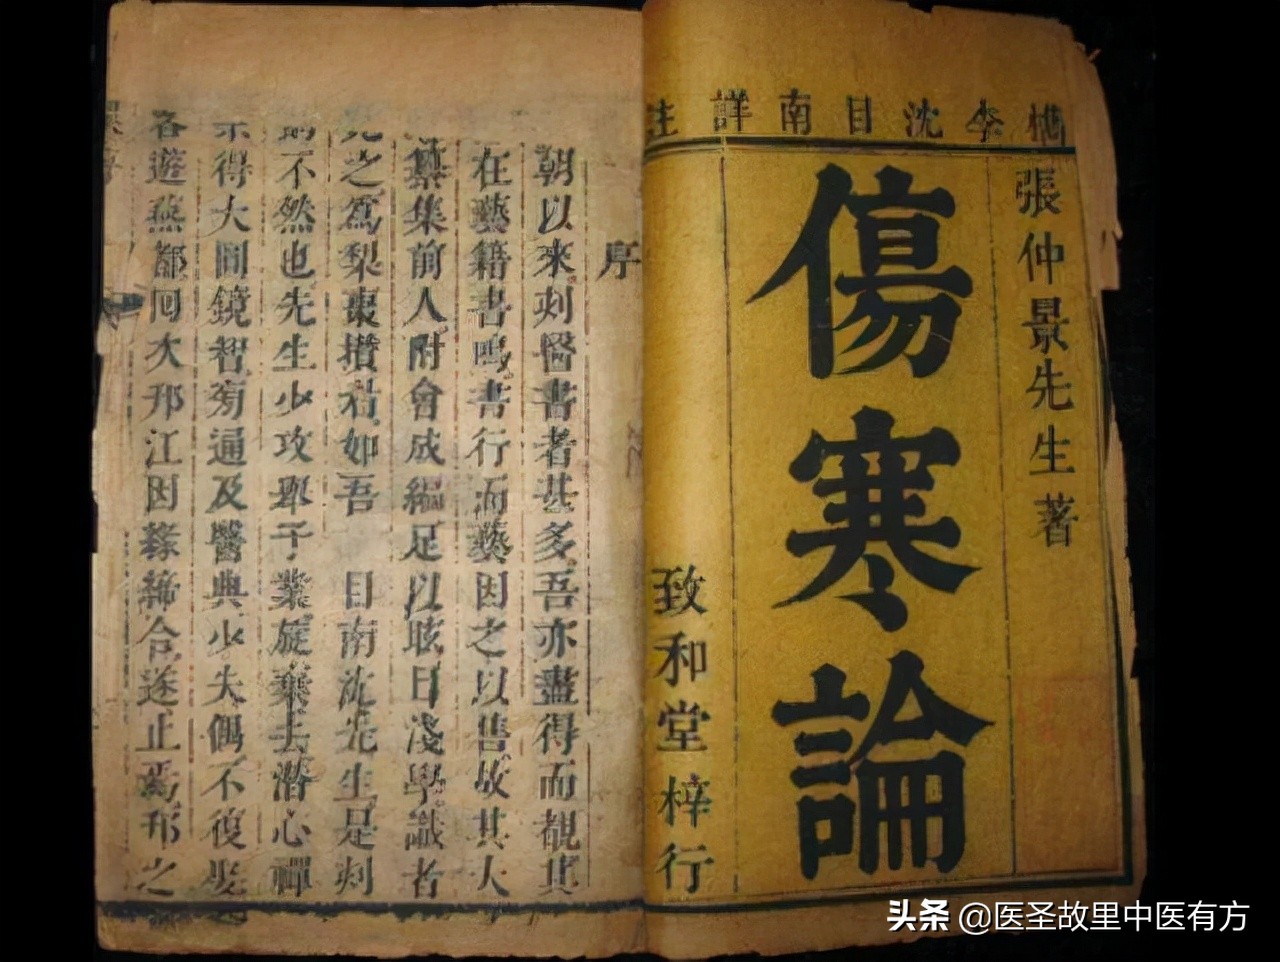 檇李沈目南詳註
張仲景先生著
傷寒論
致和堂梓行
序
朝以來刻醫書者甚多吾亦盡得而覩其
在藝籍書鳴書行而藝因之以售故其大
纂集前人附會成編足以眩目淺學識者
見之爲梨棗攢眉如吾 目南沈先生是刻
則不然也先生少攻舉子業旋棄去潛心禪
宗得大圓鏡智旁通及醫典少失偶不復娶
客遊燕都回次邗江因緣締合遂止焉邗之
头条 @医圣故里中医有方